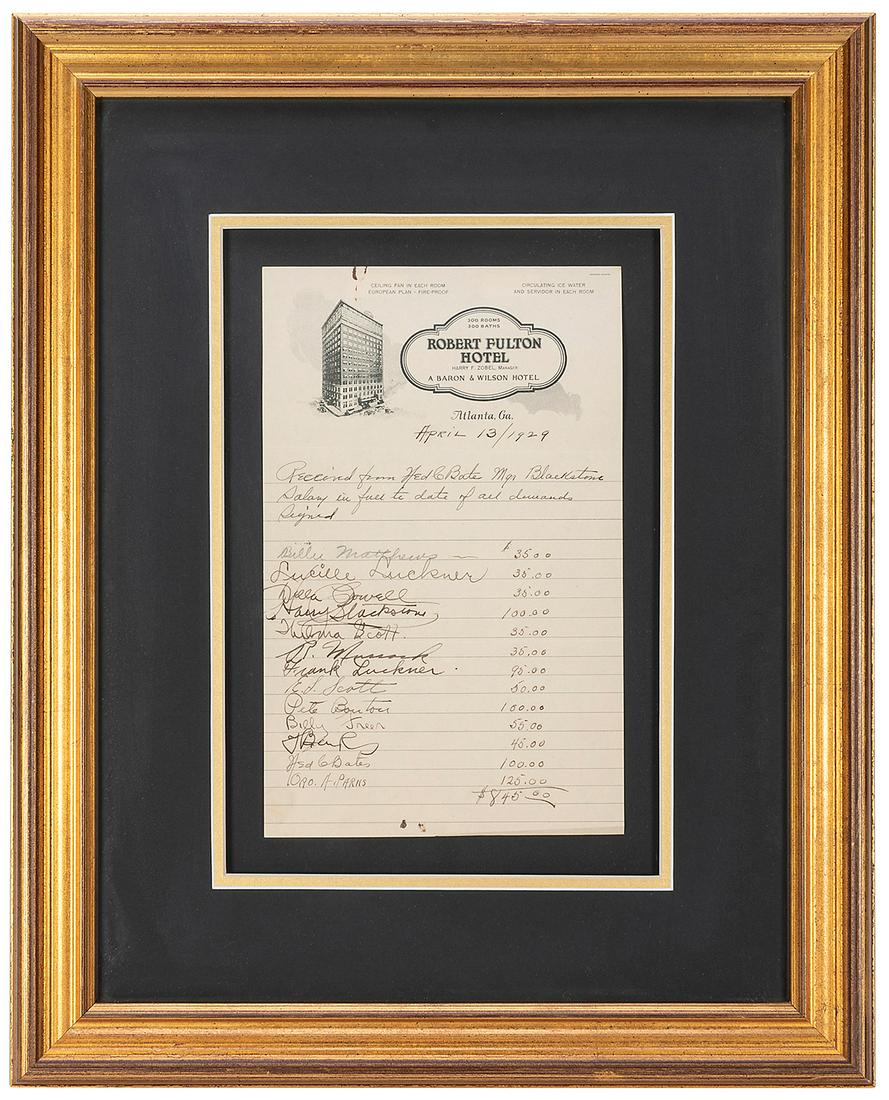 CEILING FAN IN EACH ROOM
EUROPEAN PLAN - FIRE-PROOF
CIRCULATING ICE WATER
AND SERVIDOR IN EACH ROOM
300 ROOMS
300 BATHS
ROBERT FULTON
HOTEL
HARRY F. ZOBEL, MANAGER
A BARON & WILSON HOTEL
Atlanta, Ga.
APRIL 13/1929
Received from Bates Mgr Blackstone
Salary in full to date of all demands
Signed
Billie Matthews — $ 35.00
Lucille Luckner 35.00
Della Powell 35.00
Harry Blackstone 100.00
Thelma Scott. 35.00
35.00
Frank Luckner . 95.00
Ed. Scott 50.00
Pete Bouton 100.00
Billy Freer 55.00
45.00
Bates 100.00
Geo. A. Parks 125.00
$845.00